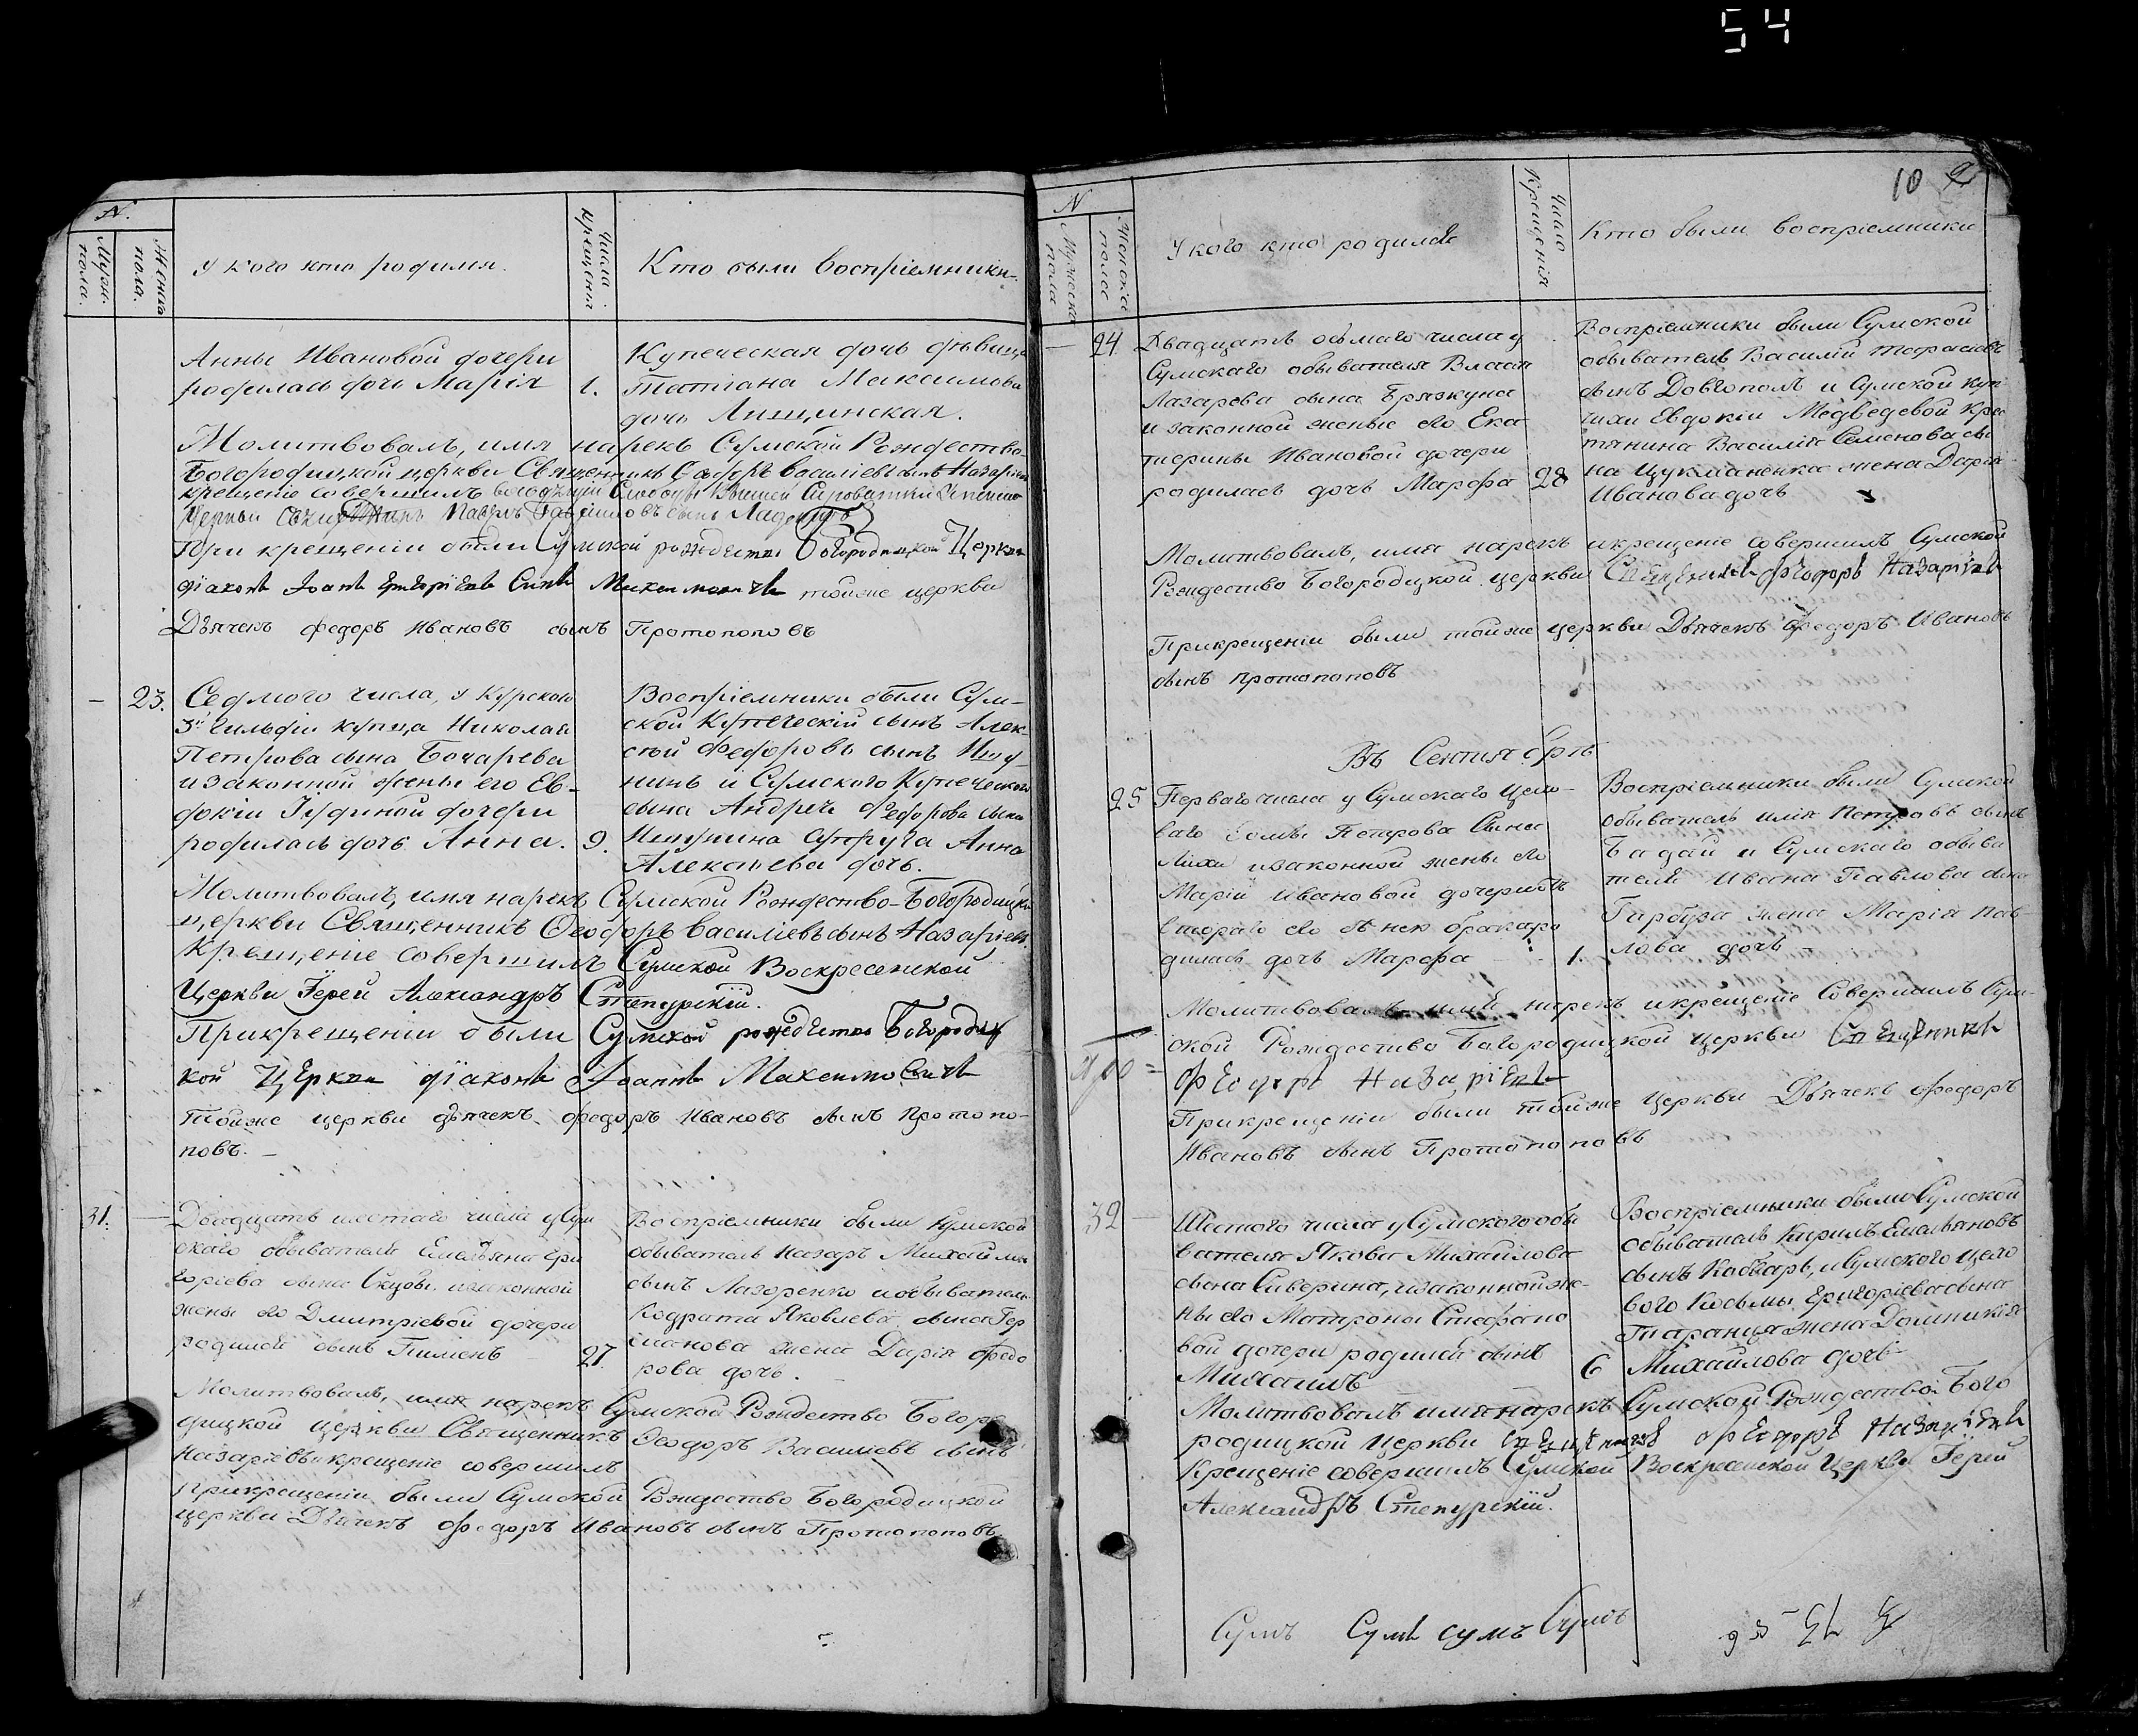 54
N.
Мужн. пола.
Женска пола.
У кого кто родился.
Числа крещенія
Кто были воспріемники.
Анны Ивановой дочери
родилась дочь Марія 1.
Купеческая дочь дѣвица
Татіана Максимова
дочь Лищинская.
Молитвовалъ, имя нарекъ Сумской Рождество-
Богородицкой церкви Священникъ Ѳеодоръ Васильевъ сынъ Назаріевъ
крещеніе совершилъ Слободы Вышней Сыроватки
Церкви Павлъ сынъ
При крещеніи были Сумской рождество Богородицкой Церкви
діаконъ Іоаннъ Григоріевъ Сынъ Максимовичъ тойже церкви
Дьячекъ Федоръ Ивановъ сынъ Протопоповъ
- 23. Седмого числа, у Курскаго
3й гильдіи купца Николая
Петрова сына Бочарева
и законной жены его Ев-
докіи Іудиной дочери
родилась дочь Анна. 9.
Воспріемники были Сум-
ской Купеческій сынъ Алек-
сѣй Федоровъ сынъ Ишу-
нинъ и Сумского Купеческого
сына Андрея Федорова сына
Ишунина супруга Анна
Алексѣева дочь.
Молитвовалъ, имя нарекъ Сумской Рождество-Богородицкой
церкви Священникъ Ѳеодоръ Васильевъ сынъ Назаріевъ.
Крещеніе совершилъ Сумской Воскресенской
Церкви Іерей Александръ Степурскій.
При крещеніи были Сумской рождество Богородиц
кой Церкви діаконъ Іоаннъ Максимовичъ
тойже церкви дьячекъ федоръ Ивановъ сынъ Протопо-
повъ. -
31. - Двадцать шестаго числа у Сум
скаго обывателя Емельяна Гри
горіева сына и законной
жены его Дмитріевой дочери
родился сынъ Пименъ 27
Воспріемники были Сумской
обыватель Назаръ Михайловъ
сынъ Лазоренко и обывателя
Кодрата Яковлева сына Гер
жена Дарія Федо
рова дочь.
Молитвовалъ, имя нарекъ Сумской Рождество Богоро
дицкой церкви Священникъ Ѳеодоръ Василіевъ сынъ
Назаріевъ и крещеніе совершилъ
При крещеніи были Сумской Рождество Богородицкой
церкви Дьячекъ Федоръ Ивановъ сынъ Протопоповъ
10
N
Мужеска пола
Женска пола
У кого кто родился
Число Крещенія
Кто были воспріемники
- 24 Двадцать осьмаго числа у
Сумскаго обывателя Власа
Лазарева сына Бряжкуна
и законной жены его Ека
терины Ивановой дочери
родилась дочь Марфа 28
Воспріемники были Сумской
обыватель Василій Тарасовъ
сынъ Довгополъ и Сумской куп
чихи Евдокіи Медведевой крес
тянина Василія Семенова сы
на Цукманенка жена Дарія
Иванова дочь
Молитвовалъ, имя нарекъ и крещеніе совершилъ Сумской
Рождество Богородицкой церкви Священникъ Федоръ Назаріевъ
При крещеніи были тойже церкви Дьячекъ Федоръ Ивановъ
сынъ Протопоповъ
Въ Сентябрѣ
25 Перваго числа у Сумскаго цехо-
ваго Фомы Петрова Сына
и законной жены его
Маріи Ивановой дочери
втораго его брака ро
дилась дочь Марфа - 1.
Воспріемники были Сумской
обыватель Илія Петровъ сынъ
Бадай и Сумскаго обыва
теля Ивана Павлова сына
Гарбуза жена Марія Пав-
лова дочь
Молитвовалъ имя нарекъ и крещеніе Совершилъ Сум-
ской Рождество Богородицкой церкви Священникъ
Федоръ Назаріевъ
При крещеніи были тойже церкви Дьячекъ Федоръ
Ивановъ сынъ Протопоповъ
32 - Шестого числа у Сумского обы
вателя Якова Михайлова
сына Саверина, и законной же-
ны его Матроны Стефано
вой дочери родился сынъ 6
Михаилъ
Воспріемники были Сумской
обыватель Кирилъ Емельяновъ
сынъ Кобзарь, и Сумского цехо
вого Космы Григоріева сына
Таранца жена Домникія
Михайлова дочь
Молитвовалъ имя нарекъ Сумской Рождество Бого
родицкой церкви Священникъ Федоръ Назаріевъ
Крещеніе совершилъ Сумской Воскресенской Церкви Іерей
Александръ Степурскій.
Сумъ Сумъ сумъ Сумъ